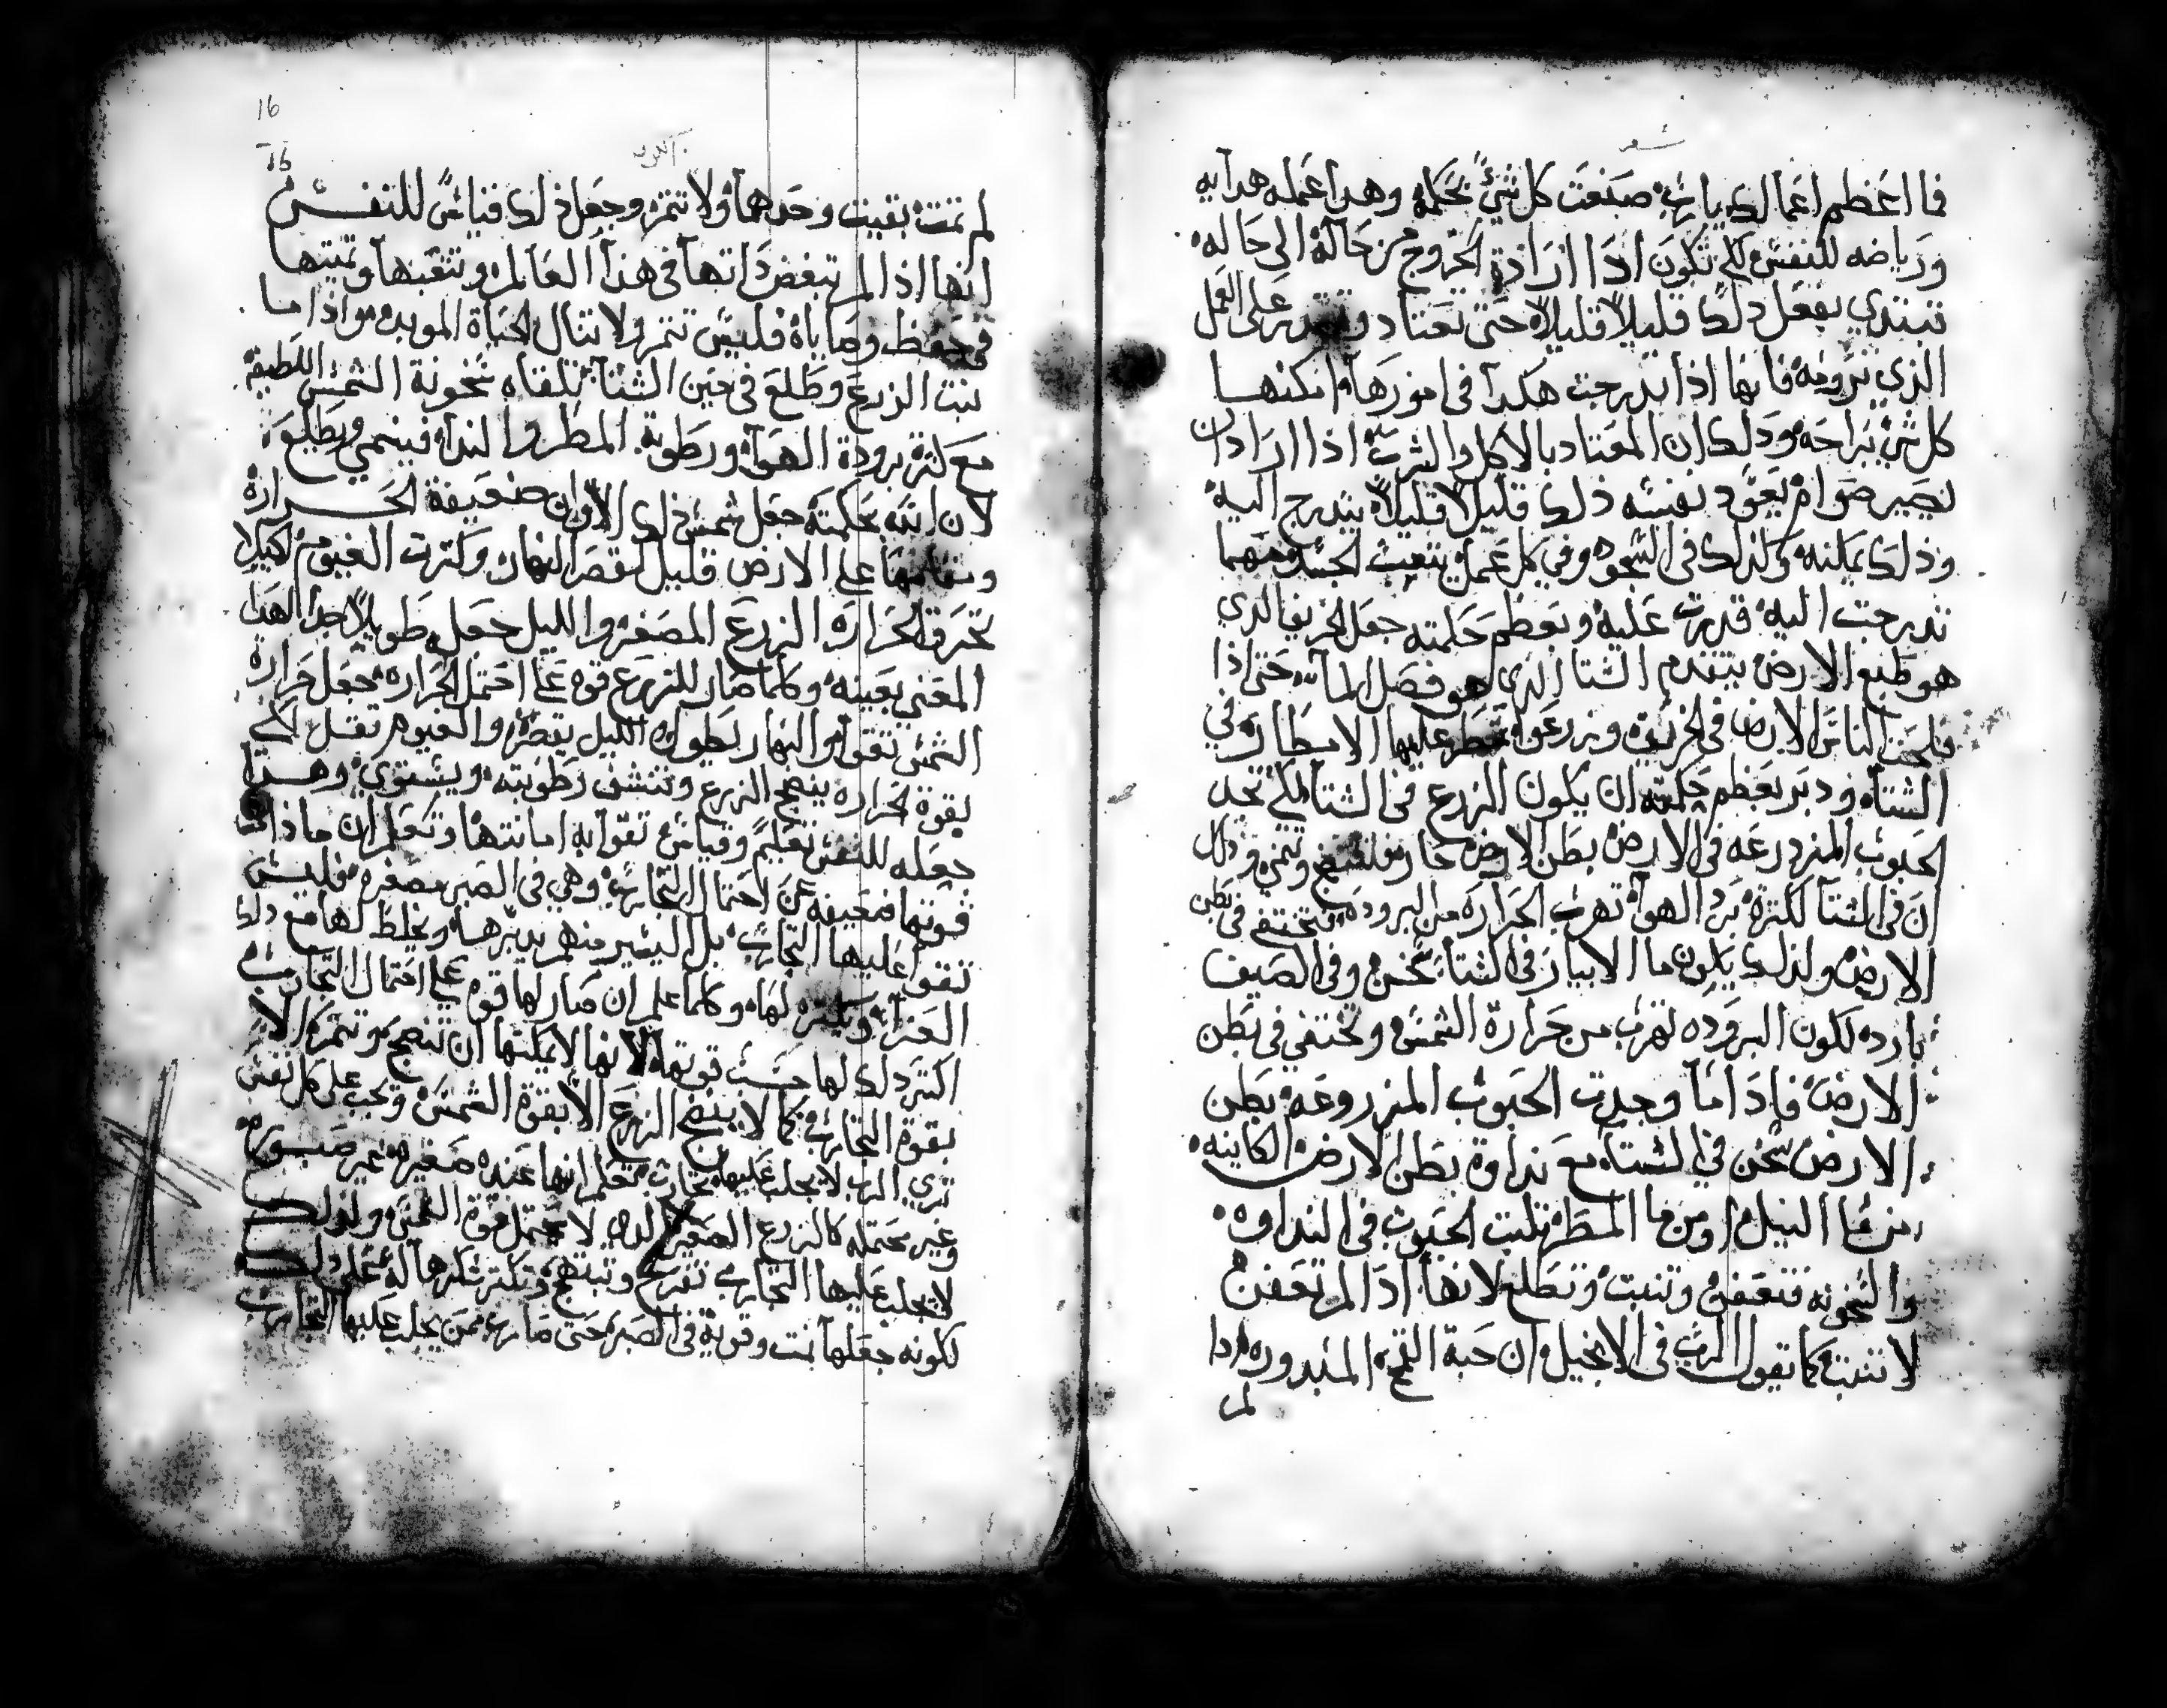 فما اعظم اعمالك يا رب صنعت كل شي بحكمه وهدا عمله هدايه
ورياضه للنفس لكي تكون ادا ارادة الخروج من حالة الى حاله
تبتدي بفعل دلك قليلا قليلا حتى تعتاد وتقدر على العمل
الذي ترومه فانها اذا تدرجت هكدا في امورها امكنها
كل شي براحه ودلك ان المعتاد بالاكل والشرب اذا اراد ان
يصير صوام يعود نفسه ذلك قليلا قليلا يتدرج اليه
وذلك يمكنه وكذلك في السجود وفي كل عمل يتعب الجسد ومهما
تدرجت اليه قدرت عليه وبعظم حكمته جعل الخريف الدي
هو طبع الارض يتقدم الشتا الذي هو فصل الما حتى اذا
فلحت الناس الارض في الخريف وزرعوا تمطر عليها الامطار في
الشتاء ودبر بعظم حكمته ان يكون الزرع في الشتا لكي تجد
الحبوب المزدرعه في الارض بطن الارض حار فتسخن وتنمي ودلك
ان في الشتا لكترة برد الهوا تهرب الحراره من البروده فتختفي في بطن
الارض ولذلك يكون ما الابيار في الشتا سخن وفي الصيف
بارده لكون البروده تهرب من حرارة الشمس وتختفي في بطن
الارض فاذا ما وجدت الحبوب المزروعه بطن
الارض سخن في الشتاء مع نداوة بطن الارض الكاينه
من ما النيل او من ما المطر تلبت الحبوب في النداوه
والسخونه فتعفن وتنبت وتطلع لانها اذا لم تعفن
لا تنبت كما تقول الرب في الانجيل ان حبة القمح المبدوره ادا
لم
16
15
لم تمت بقيت وحدها ولا تتمر وجعل ذلك قياس للنفس
انها اذا لم تبغض داتها في هذا العالم وتتعبها وتميتها
في حفظ وصاياه فليس تتمر ولا تنال الحياة الموبده واذا ما
نبت الزرع وطلع في حين الشتا تلقاه سخونة الشمس اللطيفه
مع كترة برودة الهوا ورطوبة المطر والندا فينمي ويطلع
لان الله بحكمته جعل شمس ذلك الاوان ضعيفة الحراره
ومقامها على الارض قليل لقصر النهار وكترت الغيوم لكيلا
تحرق الحراره الزرع المصغر والليل جعله طويلا جدا لهدا
المعني بعينه وكلما صار للزرع قوه على احتمال الحراره جعل حرارة
الشمس تقوا والنهار يطول والليل يقصر والغيوم تقل لكي
بقوة الحراره ينضج الزرع وتنشف رطوبته ويستوي وهدا
جعله للنفس تعليم وقياس تقوا به امانتها وتعلم ان ما دامت
قوتها ضعيفه عن احتمال التجارب وهي في الصبر مصغره فليس
تقوا عليها التجارب بل اليسير منهم يدبرها ويخلط لها مع دلك
العزا ويكتره لها وكلما علم ان صار لها قوه على احتمال التجارب
اكتر دلك لها حسب قوتها لانها لا يمكنها ان تنضج وتتمر الا
بقوة التجارب كما لا ينضج الزرع الا بقوة الشمس وتجب على كل نفس
تري الرب لا يجلب عليها تجارب تعلم انها عنده صغيره غير صبوره
وغير محتمله كالزرع الصغير الدي لا يحتمل قوة الشمس ولذلك
لا يجلب عليها التجارب تفرح وتبتهج وتكتر شكرها له على دلك
لكونه جعلها نمت وقويه في الصبر حتى صارت ممن يجلب عليها التجارب